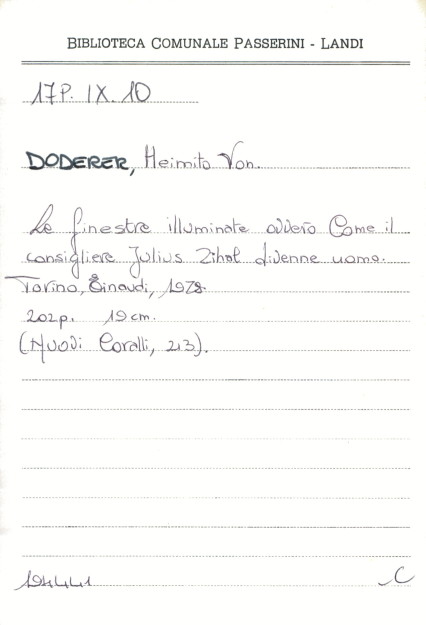 BIBLIOTECA COMUNALE PASSERINI - LANDI
17P. IX. 10
DODERER, Heimito Von.
Le finestre illuminate ovvero Come il
consigliere Julius Zihal divenne uomo.
Torino, Einaudi, 1978.
202p. 19 cm.
(Nuovi Coralli, 213).
C